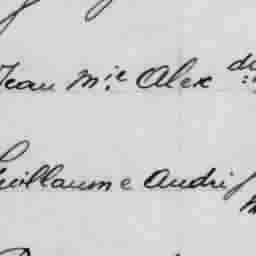 Jean M.ie Alex
Guillaume Andri